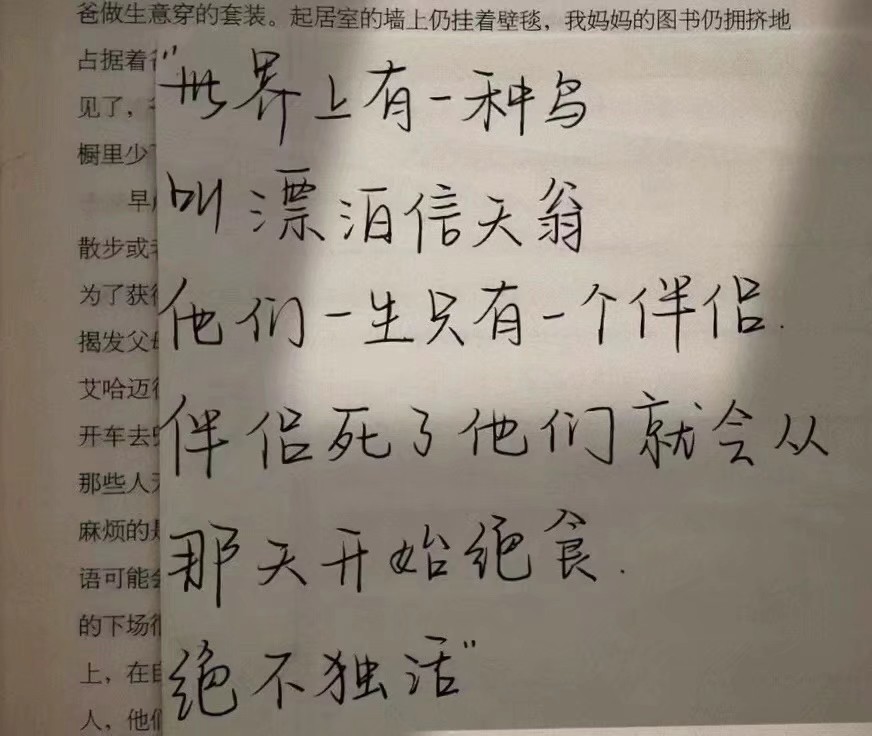 爸做生意穿的套装。起居室的墙上仍挂着壁毯，我妈妈的图书仍拥挤地
占据着
见了，
橱里少
早
散步或
为了获得
揭发父母
艾哈迈德
开车去
那些人
麻烦的是
语可能会
的下场很
上，在自
人，他们
"世界上有一种鸟
叫漂泊信天翁
他们一生只有一个伴侣.
伴侣死了他们就会从
那天开始绝食.
绝不独活"